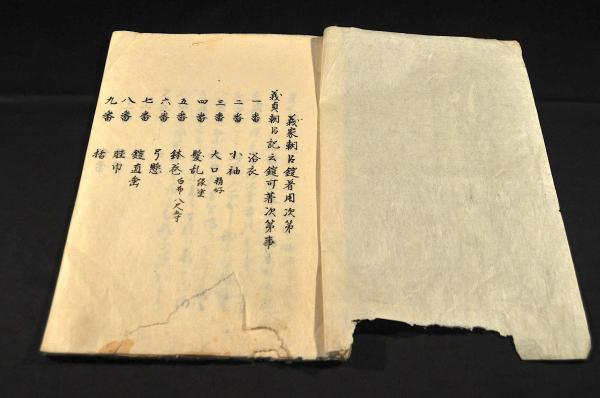 義家朝臣鎧着用次第
義貞朝臣記云鎧可著次第事
一番 浴衣
二番 小袖
三番 大口 精好
四番 髪乱
五番 鉢巻 白布八尺五寸
六番 弓懸
七番 鎧直垂
八番 脛巾
九番